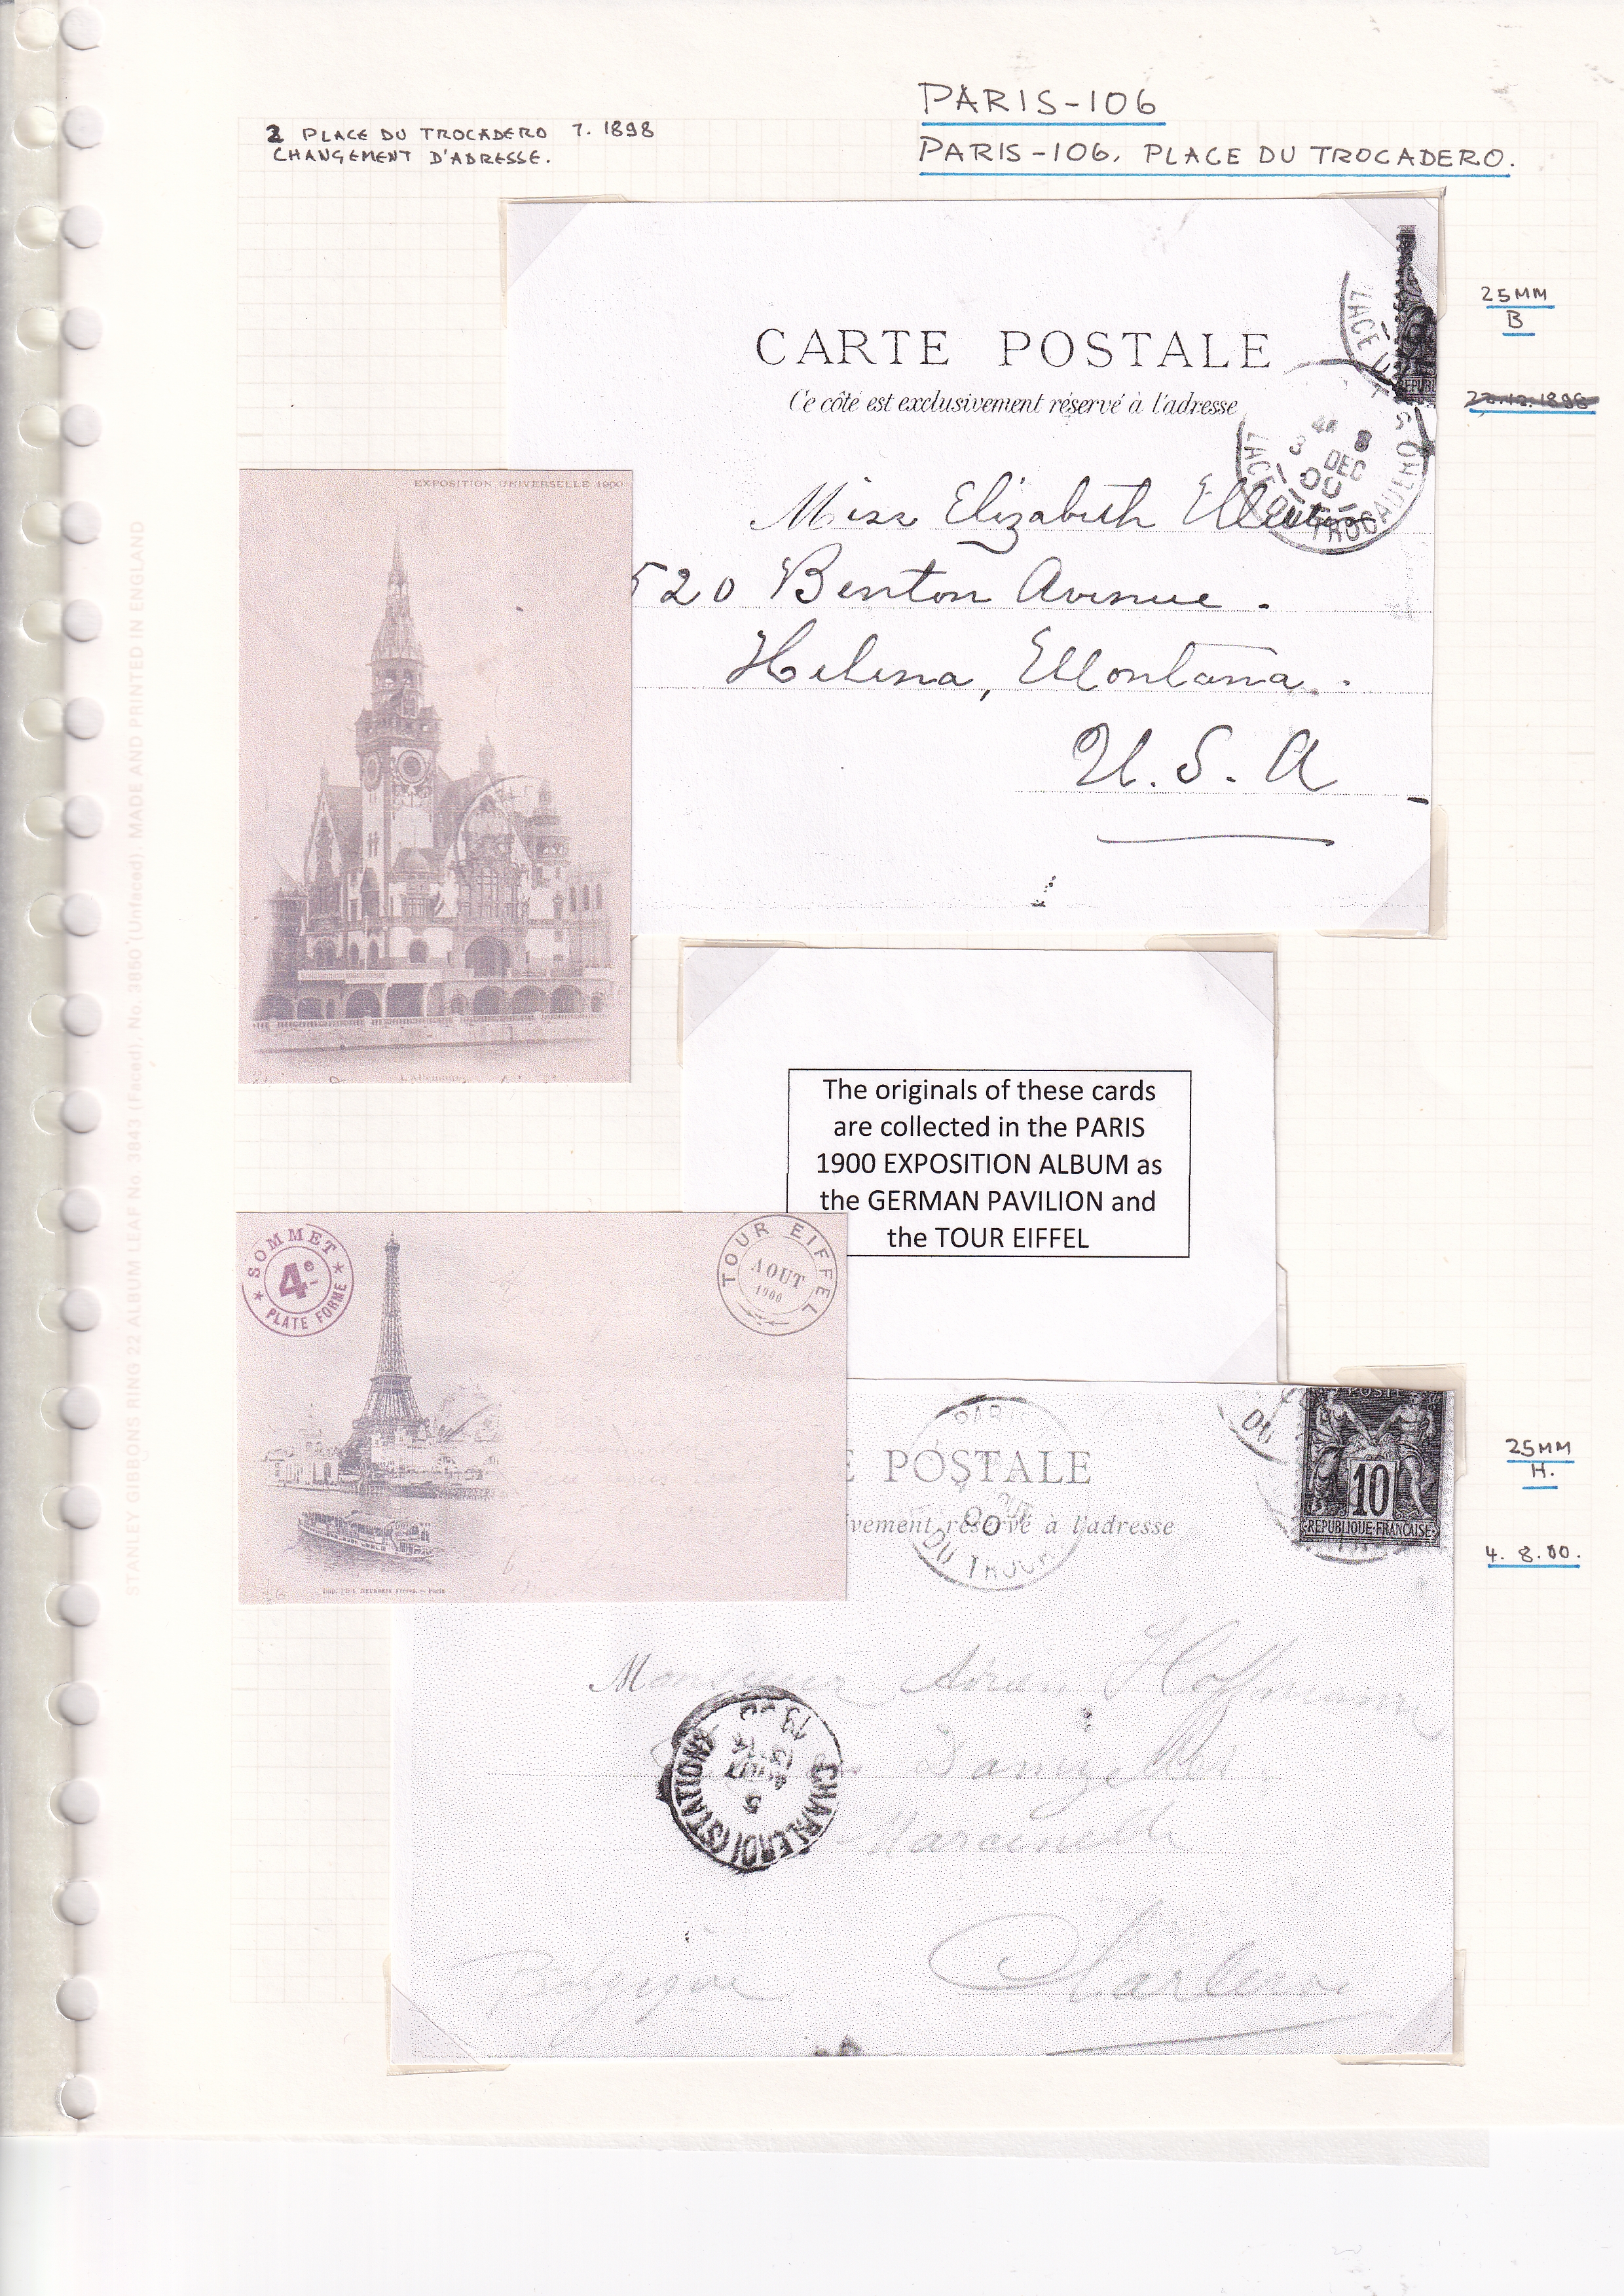 PARIS-106
PARIS-106. PLACE DU TROCADERO.
2 PLACE DU TROCADERO 7. 1898
CHANGEMENT D'ADRESSE.
25MM
B
22.12.1898
CARTE POSTALE
Ce côté est exclusivement réservé à l'adresse
LACE
REPUBL
3 8
DEC
00
LACE DU TROCADERO
Miss Elizabeth
520 Benton Avenue.
Helena, Montana.
U. S. A
EXPOSITION UNIVERSELLE 1900
The originals of these cards
are collected in the PARIS
1900 EXPOSITION ALBUM as
the GERMAN PAVILION and
the TOUR EIFFEL
SOMMET
4e
PLATE FORME
TOUR EIFFEL
AOUT
1900
Imp. Phot. NEURDEIN Frères. — Paris
25MM
H.
4. 8. 00.
E POSTALE
ivement réservé à l'adresse
PARIS
00
DU TROCA
DU
POSTE
10
REPUBLIQUE FRANCAISE
Monsieur Adrien Hoffmann
Marcinelle
CHARLEROI (STATION)
5
AOUT
19
Belgique Charleroi
STANLEY GIBBONS RING 22 ALBUM LEAF No. 3843 (Faced), No. 3850 (Unfaced). MADE AND PRINTED IN ENGLAND